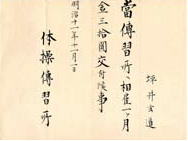 坪井玄道
當傳習所ヘ相雇一ヶ月
金三拾圓交付候事
明治十一年十一月一日
体操傳習所